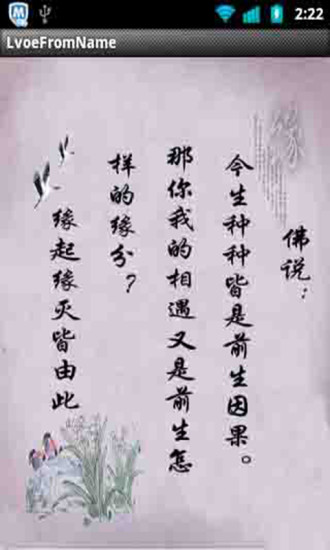 2:22
LvoeFromName
缘
佛说：
今生种种皆是前生因果。
那你我的相遇又是前生怎
样的缘分？
缘起缘灭皆由此